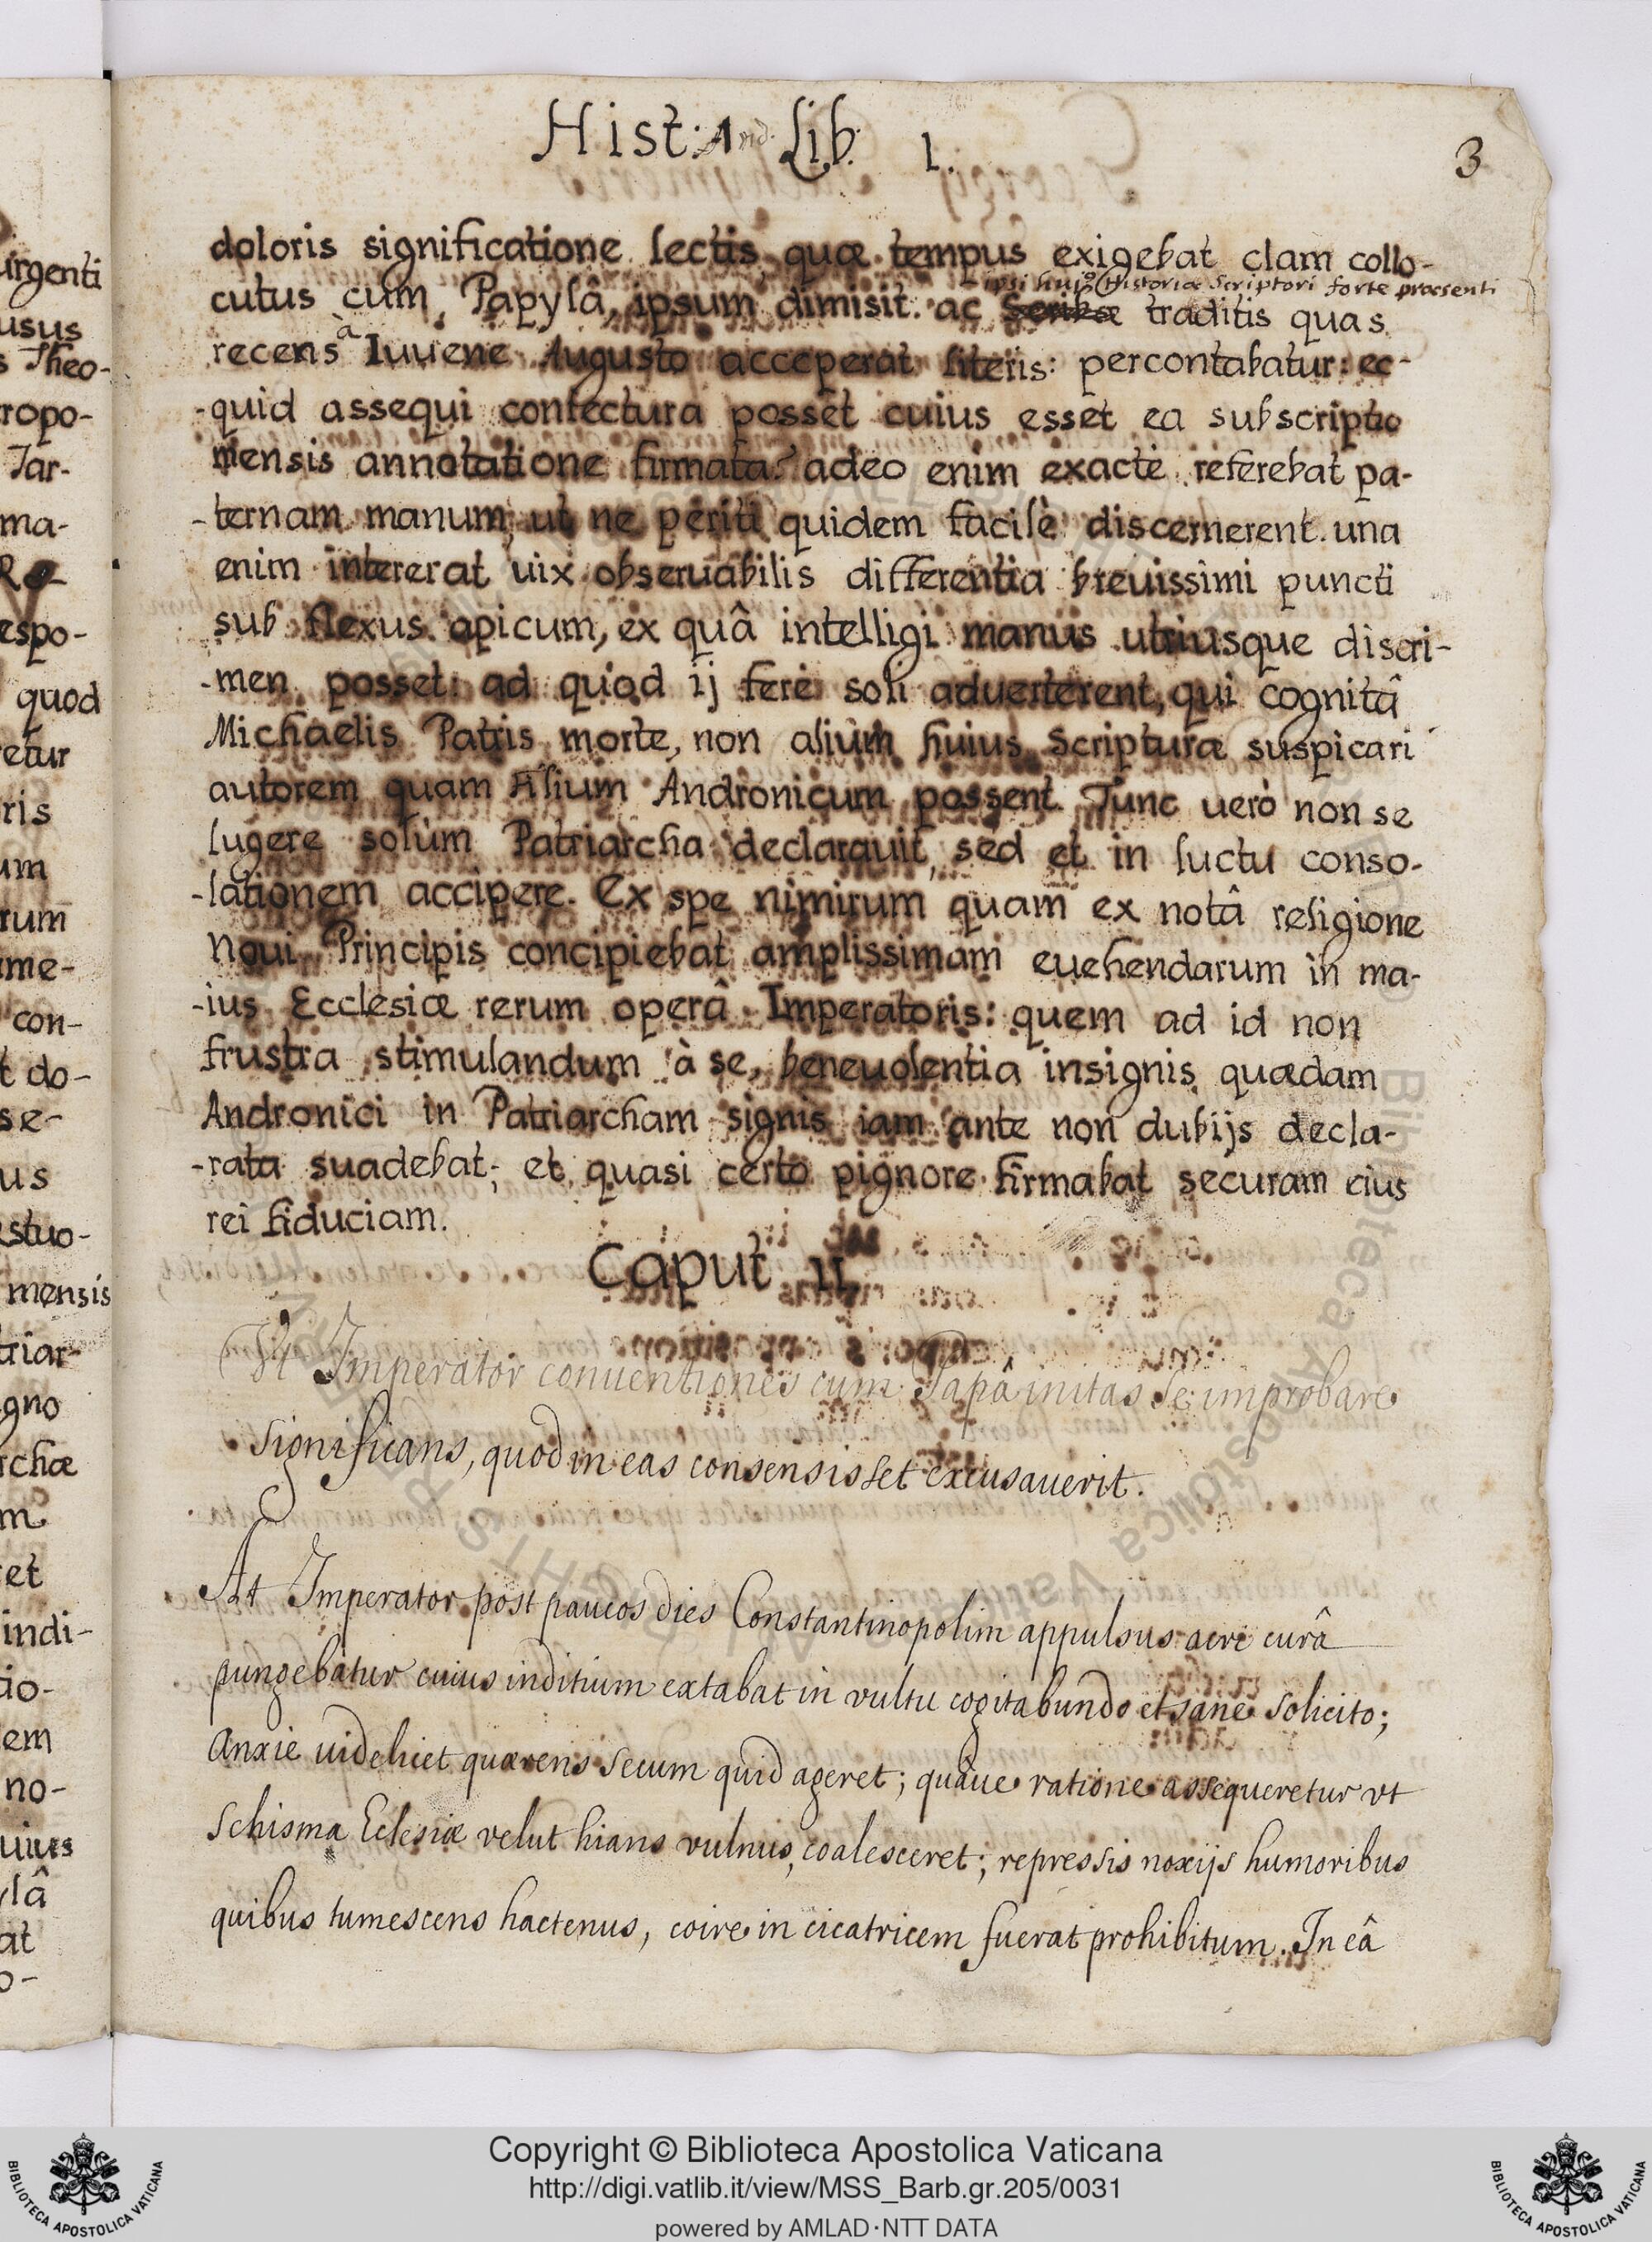 Hist: And. Lib. 1.
3
doloris significatione lectis, quæ tempus exigebat clam collo-
ipsi huius Historiæ Scriptori forte præsenti
cutus cum Papylâ, ipsum dimisit. ac Scribæ traditis quas
recens à Iuuene Augusto acceperat literis: percontabatur: ec-
-quid assequi coniectura posset cuius esset ea subscriptio
mensis annotatione firmata? adeo enim exactè referebat pa-
-ternam manum, ut ne periti quidem facilè discernerent. una
enim intererat uix obseruabilis differentia breuissimi puncti
sub flexus apicum, ex quâ intelligi manus utriusque discri-
-men posset: ad quod ij ferè soli aduerterent, qui cognitâ
Michaelis Patris morte, non alium huius Scripturæ suspicari
autorem quam Filium Andronicum possent. Tunc uerò non se
lugere solùm Patriarcha declarauit, sed et in luctu conso-
-lationem accipere. Ex spe nimirum quam ex notâ religione
Noui Principis concipiebat amplissimam euehendarum in ma-
-ius Ecclesiæ rerum operâ Imperatoris: quem ad id non
frustra stimulandum à se, beneuolentia insignis quædam
Andronici in Patriarcham signis iam ante non dubijs decla-
-rata suadebat; et quasi certo pignore firmabat securam eius
rei fiduciam.
Caput II
Vt Imperator conuentiones cum Papâ initas se improbare
significans, quod in eas consensisset excusauerit.
At Imperator post paucos dies Constantinopolim appulsus acri curâ
pungebatur cuius inditium extabat in vultu cogitabundo et sane solicito;
Anxie uidelicet quærens secum quid ageret; quàue ratione assequeretur vt
Schisma Eclesiæ velut hians vulnus, coalesceret; repressis noxijs humoribus
quibus tumescens hactenus, coire in cicatricem fuerat prohibitum. In eâ
urgenti
usus
s Theo-
ropo-
Tar-
ma-
espo-
quod
retur
ris
um
rum
me-
con-
t do-
se-
us
stuo-
mensis
triar-
gno
rchæ
m
et
indi-
tio-
em
no-
uius
ylâ
at
o-
Copyright © Biblioteca Apostolica Vaticana
http://digi.vatlib.it/view/MSS_Barb.gr.205/0031
powered by AMLAD·NTT DATA
BIBLIOTECA APOSTOLICA VATICANA
BIBLIOTECA APOSTOLICA VATICANA